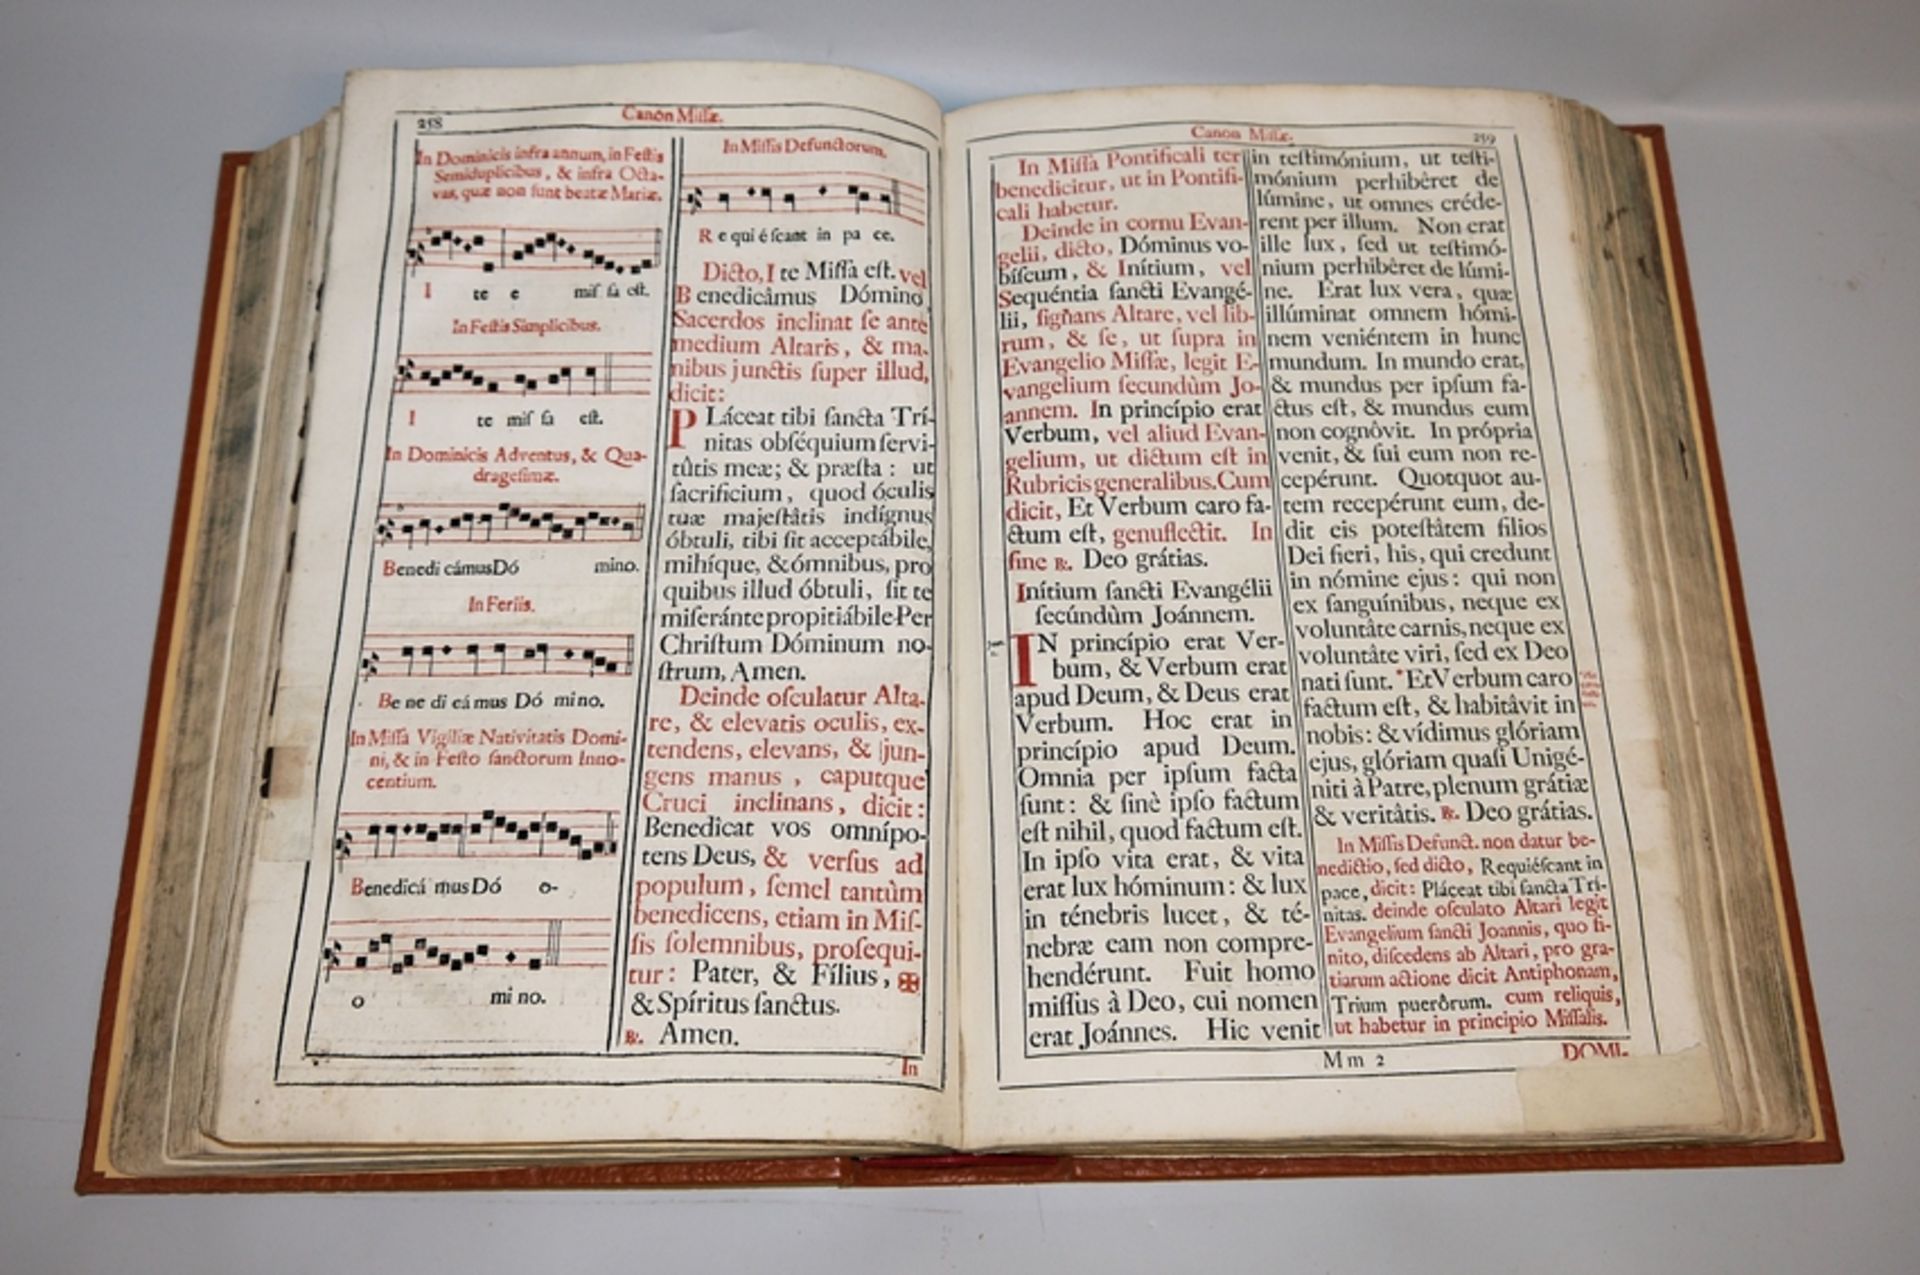 258
Canon Missæ.
In Dominicis infra annum, in Festis
Semiduplicibus, & infra Octa-
vas, quæ non sunt beatæ Mariæ.
I te e mis sa est.
In Festis Simplicibus.
I te mis sa est.
In Dominicis Adventus, & Qua-
dragesimæ.
Benedi cámus Dó mino.
In Feriis.
Be ne di cá mus Dó mi no.
In Missâ Vigiliæ Nativitatis Domi-
ni, & in Festo sanctorum Inno-
centium.
Benedicá mus Dó o-
o mi no.
In Missis Defunctorum.
R e qui é scant in pa ce.
Dicto, I te Missa est. vel
B enedicâmus Dómino,
Sacerdos inclinat se ante
medium Altaris, & ma-
nibus junctis super illud,
dicit:
PLáceat tibi sancta Trí-
nitas obséquium servi-
tûtis meæ; & præsta: ut
sacrificium, quod óculis
tuæ majestâtis indígnus
óbtuli, tibi sit acceptábile,
mihíque, & ómnibus, pro
quibus illud óbtuli, sit te
miseránte propitiábile Per
Christum Dóminum no-
strum, Amen.
Deinde osculatur Alta-
re, & elevatis oculis, ex-
tendens, elevans, & jun-
gens manus, caputque
Cruci inclinans, dicit:
Benedicat vos omnípo-
tens Deus, & versus ad
populum, semel tantùm
benedicens, etiam in Mis-
sis solemnibus, prosequi-
tur: Pater, & Fílius, ✠
& Spíritus sanctus.
℟. Amen.
In
Canon Missæ.
259
In Missâ Pontificali ter
benedicitur, ut in Pontifi-
cali habetur.
Deinde in cornu Evan-
gelii, dicto, Dóminus vo-
bíscum, & Inítium, vel
Sequéntia sancti Evangé-
lii, signans Altare, vel lib-
rum, & se, ut supra in
Evangelio Missæ, legit E-
vangelium secundùm Jo-
annem. In princípio erat
Verbum, vel aliud Evan-
gelium, ut dictum est in
Rubricis generalibus. Cum
dicit, Et Verbum caro fa-
ctum est, genuflectit. In
fine ℟. Deo grátias.
Inítium sancti Evangélii
secúndùm Joánnem.
IN princípio erat Ver-
bum, & Verbum erat
apud Deum, & Deus erat
Verbum. Hoc erat in
princípio apud Deum.
Omnia per ipsum facta
sunt: & sinè ipso factum
est nihil, quod factum est.
In ipso vita erat, & vita
erat lux hóminum: & lux
in ténebris lucet, & té-
nebræ eam non compre-
hendérunt. Fuit homo
missus à Deo, cui nomen
erat Joánnes. Hic venit
in testimónium, ut testi-
mónium perhibêret de
lúmine, ut omnes créde-
rent per illum. Non erat
ille lux, sed ut testimó-
nium perhibêret de lúmi-
ne. Erat lux vera, quæ
illúminat omnem hómi-
nem veniéntem in hunc
mundum. In mundo erat,
& mundus per ipsum fa-
ctus est, & mundus eum
non cognôvit. In própria
venit, & sui eum non re-
cepérunt. Quotquot au-
tem recepérunt eum, de-
dit eis potestâtem filios
Dei fieri, his, qui credunt
in nómine ejus: qui non
ex sanguínibus, neque ex
voluntâte carnis, neque ex
voluntâte viri, sed ex Deo
nati sunt. *Et Verbum caro
factum est, & habitâvit in
nobis: & vídimus glóriam
ejus, glóriam quasi Unigé-
niti à Patre, plenum grátiæ
& veritâtis. ℟. Deo grátias.
In Missis Defunct. non datur be-
nedictio, sed dicto, Requiéscant in
pace, dicit: Pláceat tibi sancta Trí-
nitas. deinde osculato Altari legit
Evangelium sancti Joannis, quo fi-
nito, discedens ab Altari, pro gra-
tiarum actione dicit Antiphonam,
Trium puerôrum. cum reliquis,
ut habetur in principio Missalis.
Mm 2
DOMI-